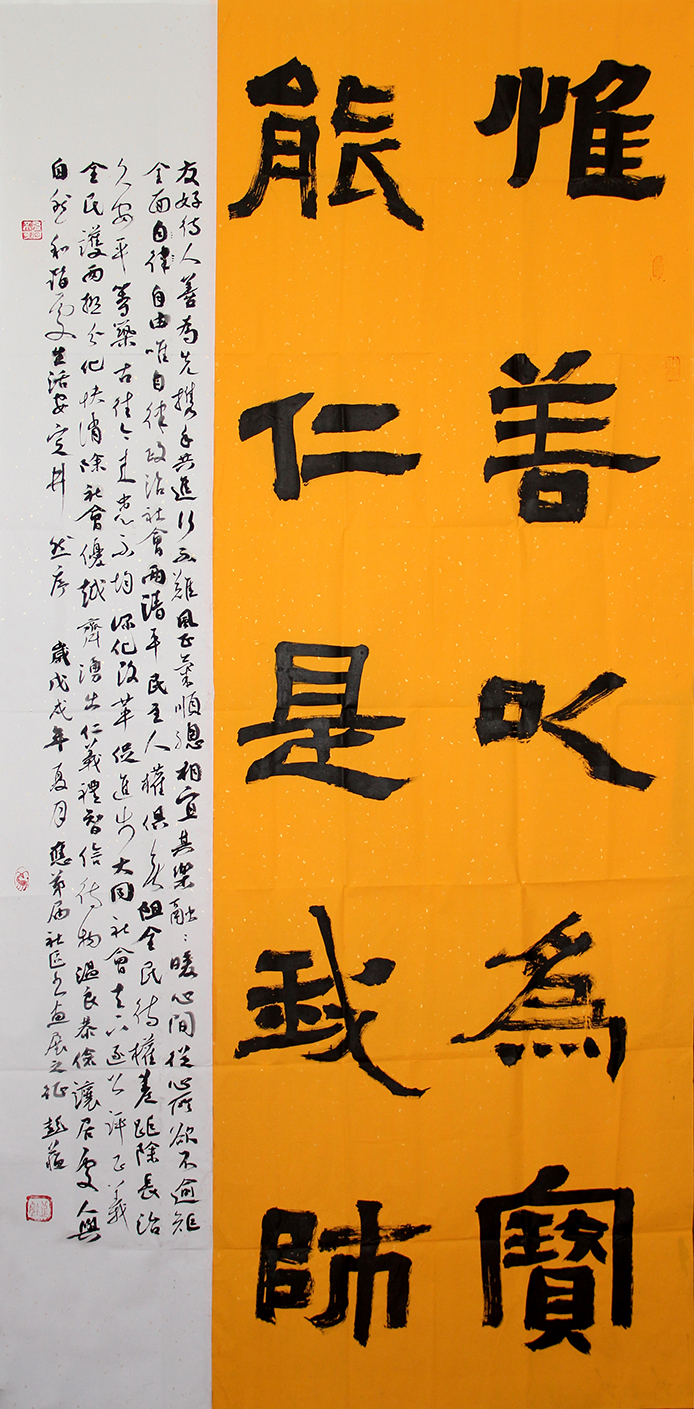 惟善以為寶
能仁是我師
友好待人善為先携手共進行不難風正氣順總相宜其樂融々暖心間從心所欲不逾矩
全面自律自由唯自律政治社會兩清平民主人權俱無阻全民待權差距除長治
久安平等樂古往今來患不均深化改革促進步大同社會公評正義
全民護兩極分化快消除社會優越齊湧出仁義禮智信待物溫良恭儉讓居處人與
自然和諧處生活安定井然序 歲戊戌年夏月應第屆社區書畫展之征